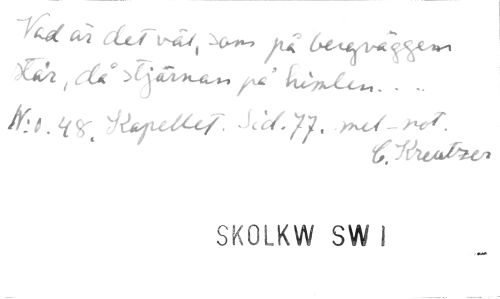 Vad är det väl, som på bergväggen
står, då stjärnan på himlen....
N:o. 48. Kapellet. Sid. 77. mel-not.
C. Kreutzer
SKOLKW SW I